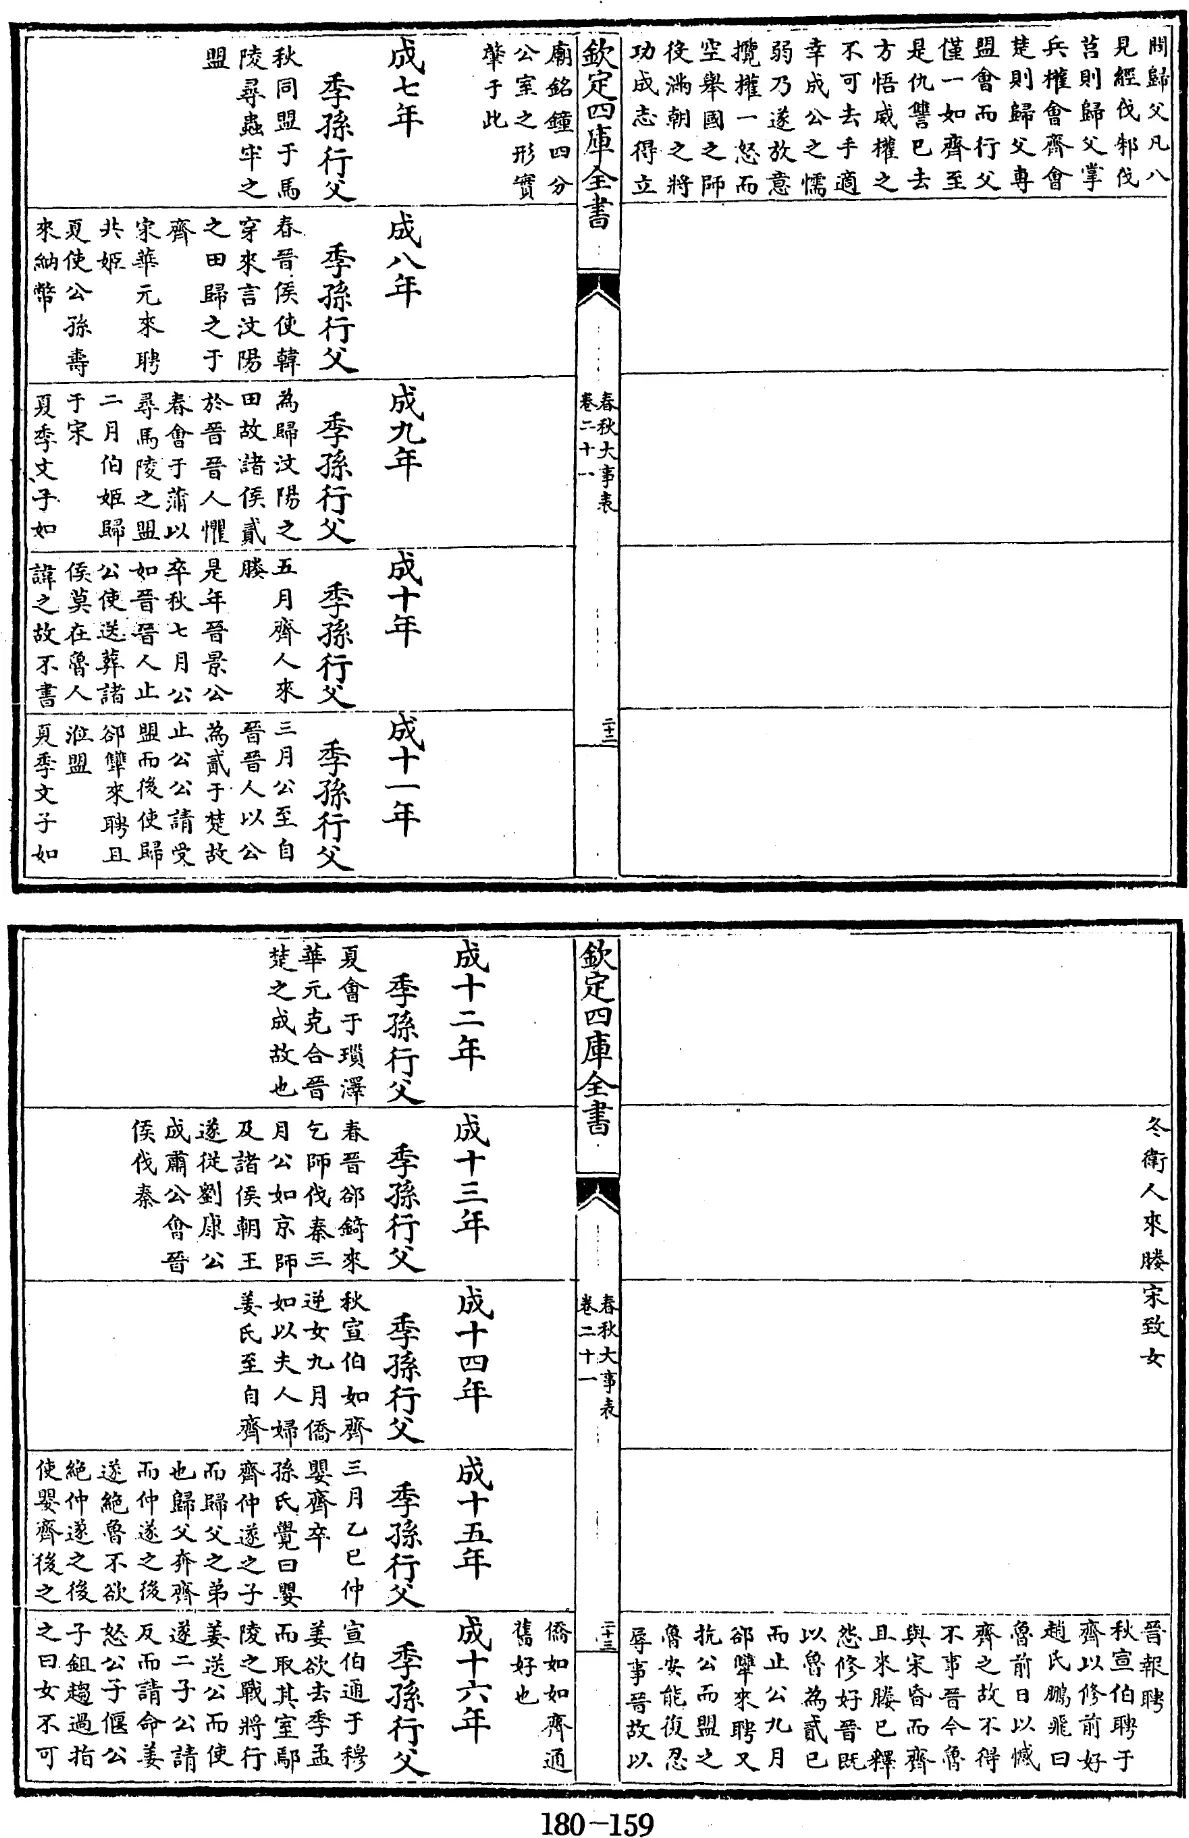 間歸父凡八
見經伐邾伐
莒則歸父掌
兵權會齊會
楚則歸父專
盟會而行父
僅一如齊至
是仇讐已去
方悟威權之
不可去手適
幸成公之懦
弱乃遂放意
攬權一怒而
空舉國之師
役滿朝之將
功成志得立
欽定四庫全書
春秋大事表
卷二十一
二十二
廟銘鐘四分
公室之形實
肇于此
成七年
季孫行父
秋同盟于馬
陵尋蟲牢之
盟
成八年
季孫行父
春晉侯使韓
穿來言汶陽
之田歸之于
齊
宋華元來聘
共姬
夏使公孫壽
來納幣
成九年
季孫行父
為歸汶陽之
田故諸侯貳
於晉晉人懼
春會于蒲以
尋馬陵之盟
二月伯姬歸
于宋
夏季文子如
成十年
季孫行父
五月齊人來
媵
是年晉景公
卒秋七月公
如晉晉人止
公使送葬諸
侯莫在魯人
諱之故不書
成十一年
季孫行父
三月公至自
晉晉人以公
為貳于楚故
止公公請受
盟而後使歸
郤犫來聘且
涖盟
夏季文子如
冬衛人來媵
宋致女
晉報聘
秋宣伯聘于
齊以修前好
趙氏鵬飛曰
魯前日以憾
齊之故不得
不事晉今魯
與宋昏而齊
且來媵已釋
怨修好晉既
以魯為貳已
而止公九月
郤犫來聘又
抗公而盟之
魯安能復忍
辱事晉故以
欽定四庫全書
春秋大事表
卷二十一
二十三
成十二年
季孫行父
夏會于瑣澤
華元克合晉
楚之成故也
成十三年
季孫行父
春晉郤錡來
乞師伐秦三
月公如京師
及諸侯朝王
遂從劉康公
成肅公會晉
侯伐秦
成十四年
季孫行父
秋宣伯如齊
逆女九月僑
如以夫人婦
姜氏至自齊
成十五年
季孫行父
三月乙巳仲
嬰齊卒
孫氏覺曰嬰
齊仲遂之子
而歸父之弟
也歸父奔齊
而仲遂之後
遂絶魯不欲
絶仲遂之後
使嬰齊後之
僑如如齊通
舊好也
成十六年
季孫行父
宣伯通于穆
姜欲去季孟
而取其室鄢
陵之戰將行
姜送公而使
遂二子公請
反而請命姜
怒公子偃公
子鉏趨過指
之曰女不可
180-159